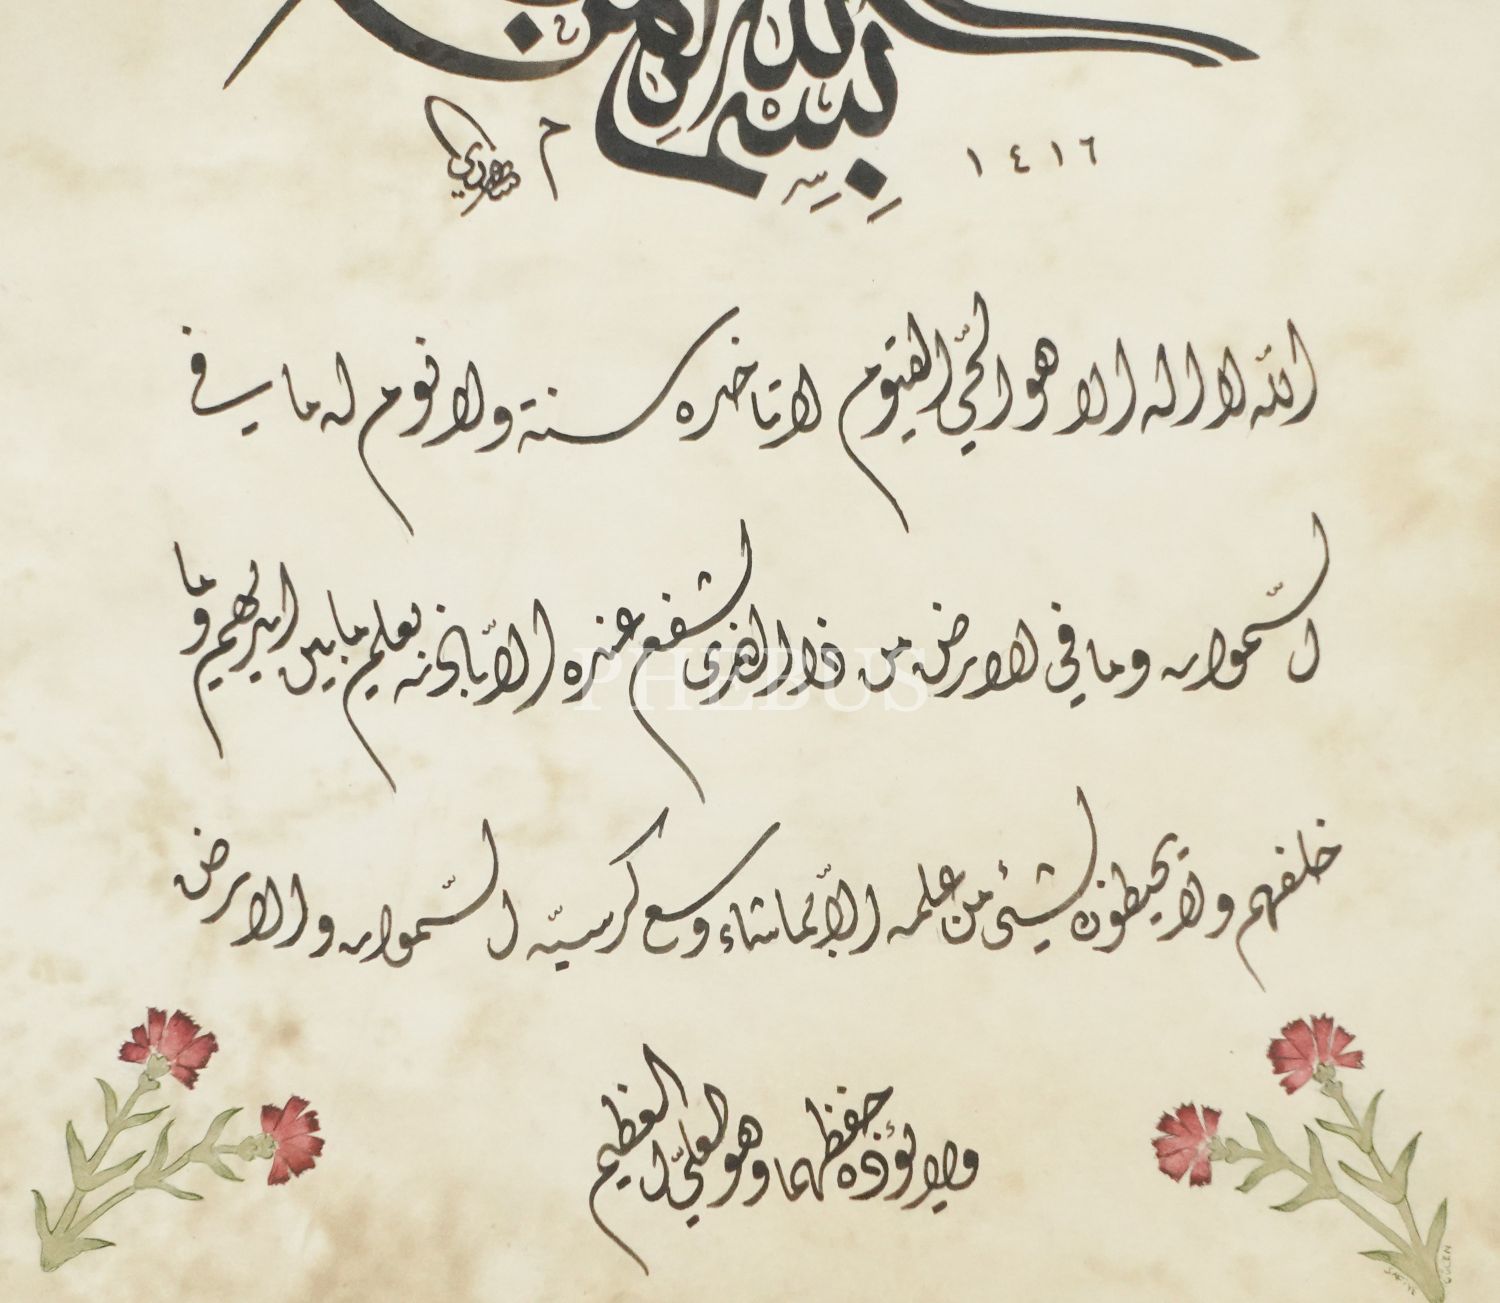 بسم الله
١٤١٦
الله لا اله الا هو الحيّ القيّوم لا تاخذه سنة ولا نوم له ما في
السّموات وما في الارض من ذا الذي يشفع عنده الاّ باذنه يعلم ما بين ايديهم وما
خلفهم ولا يحيطون بشئ من علمه الاّ بما شاء وسع كرسيّه السّموات والارض
ولا يؤده حفظهما وهو العليّ العظيم
PHEBUS
GÜLEN